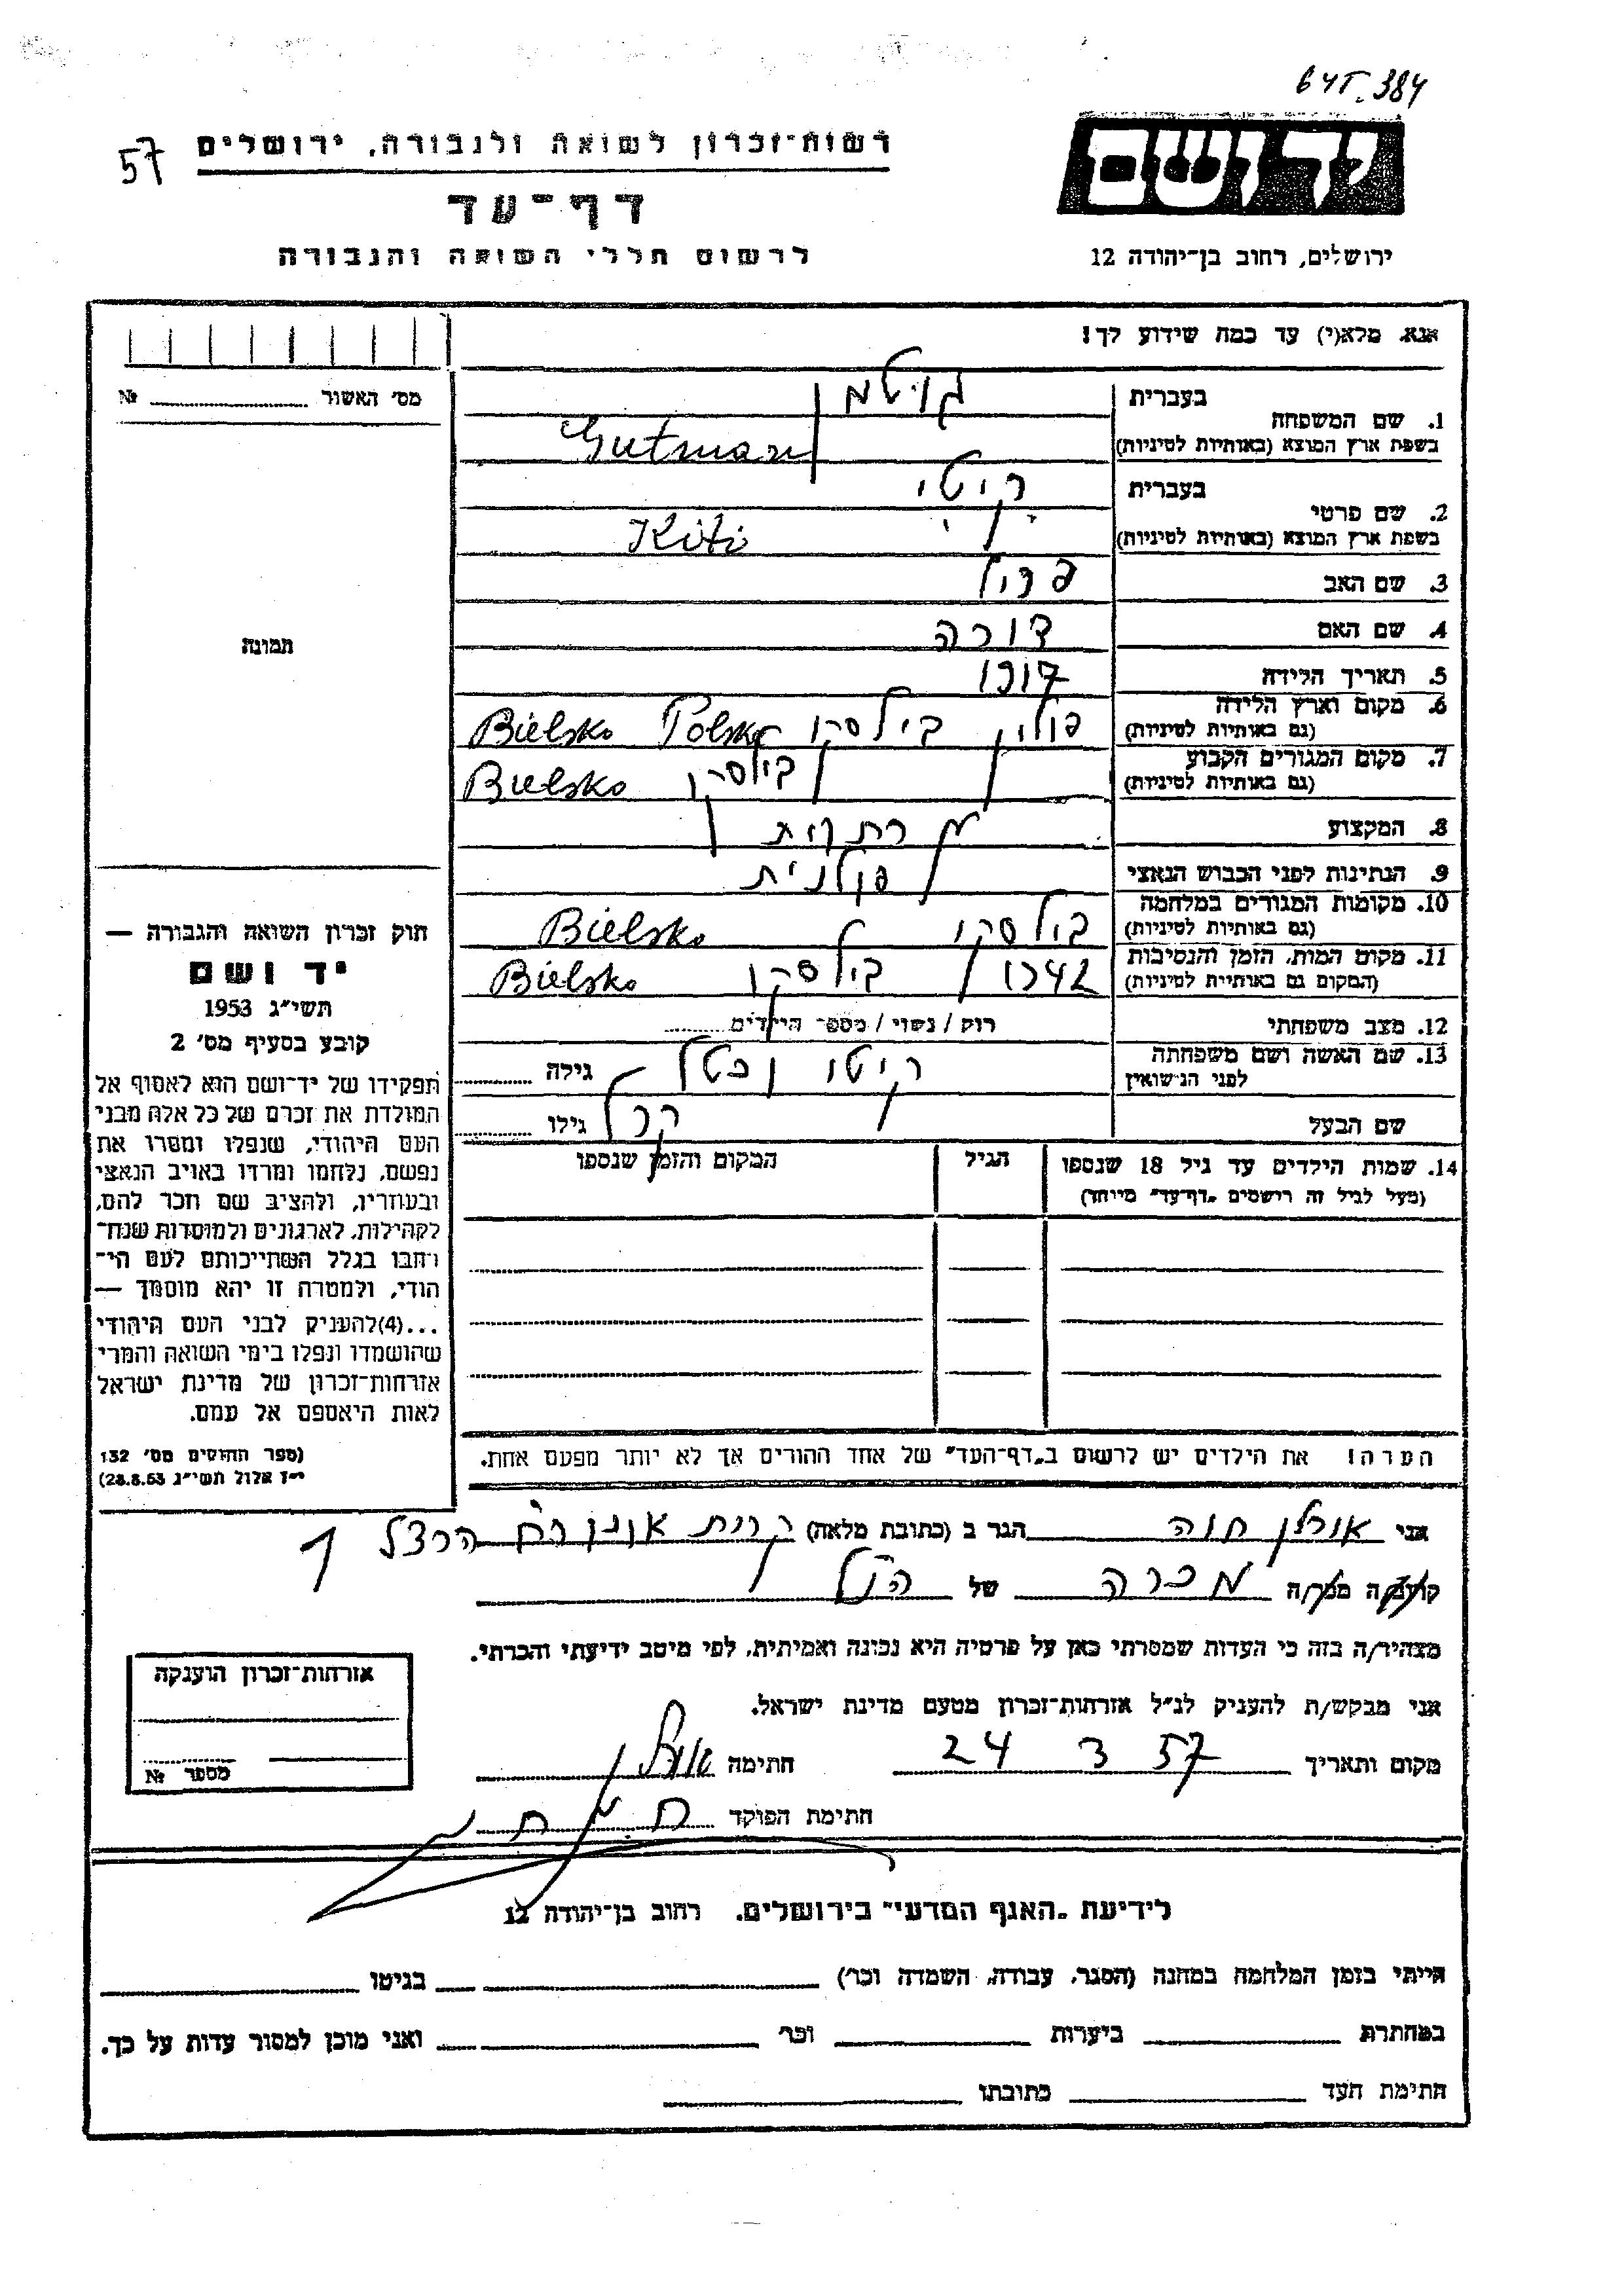 64T.384
יד ושם
57
רשות-זכרון לשואה ולגבורה, ירושלים
דף-עד
לרשום חללי השואה והגבורה
ירושלים, רחוב בן-יהודה 12
אנא, מלא(י) עד כמה שידוע לך!
מס' האשור № 
1. שם המשפחה
בעברית גוטמן
בשפת ארץ המוצא (באותיות לטיניות) Gutman
2. שם פרטי
בעברית קיטי
בשפת ארץ המוצא (באותיות לטיניות) Kiti
3. שם האב
4. שם האם דורה
תמונה
5. תאריך הלידה
6. מקום וארץ הלידה
(גם באותיות לטיניות) פולין בילסקו Polska Bielsko
7. מקום המגורים הקבוע
(גם באותיות לטיניות) בילסקו Bielsko
8. המקצוע
9. הנתינות לפני הכבוש הנאצי פולנית
10. מקומות המגורים במלחמה
(גם באותיות לטיניות) בילסקו Bielsko
11. מקום המות, הזמן והנסיבות
(המקום גם באותיות לטיניות) 1942 בילסקו Bielsko
12. מצב משפחתי רוק / נשוי / מספר הילדים
13. שם האשה ושם משפחתה
לפני הנישואין קיטי גילה
שם הבעל גילו
14. שמות הילדים עד גיל 18 שנספו
(מעל לגיל זה רושמים "דף-עד" מיוחד)
הגיל
המקום והזמן שנספו
חוק זכרון השואה והגבורה —
יד ושם
תשי"ג 1953
קובע בסעיף מס' 2
תפקידו של יד-ושם הוא לאסוף אל
המולדת את זכרם של כל אלה מבני
העם היהודי, שנפלו ומסרו את
נפשם, נלחמו ומרדו באויב הנאצי
ובעוזריו, ולהציב שם וזכר להם,
לקהילות, לארגונים ולמוסדות שנח-
רבו בגלל השתייכותם לעם הי-
הודי, ולמטרה זו יהא מוסמך —
...(4)להעניק לבני העם היהודי
שהושמדו ונפלו בימי השואה והמרי
אזרחות-זכרון של מדינת ישראל
לאות היאספם אל עמם.
(ספר החוקים מס' 132
י"ז אלול תשי"ג 28.8.53)
הערה! את הילדים יש לרשום ב"דף-העד" של אחד ההורים אך לא יותר מפעם אחת.
אני חוה הגר ב (כתובת מלאה) קרית אונו רח' הרצל 1
קרוב/ה מכר/ה מכרה של הנ"ל
מצהיר/ה בזה כי העדות שמסרתי כאן על פרטיה היא נכונה ואמיתית, לפי מיטב ידיעתי והכרתי.
אני מבקש/ת להעניק לנ"ל אזרחות-זכרון מטעם מדינת ישראל.
מקום ותאריך 24 3 57 חתימה
חתימת הפוקד
אזרחות-זכרון הוענקה
מספר №
לידיעת "האגף המדעי" בירושלים, רחוב בן-יהודה 12
הייתי בזמן המלחמה במחנה (הסגר, עבודה, השמדה וכו') בגיטו
במחתרת ביערות וכו' ואני מוכן למסור עדות על כך.
חתימת העד כתובתו